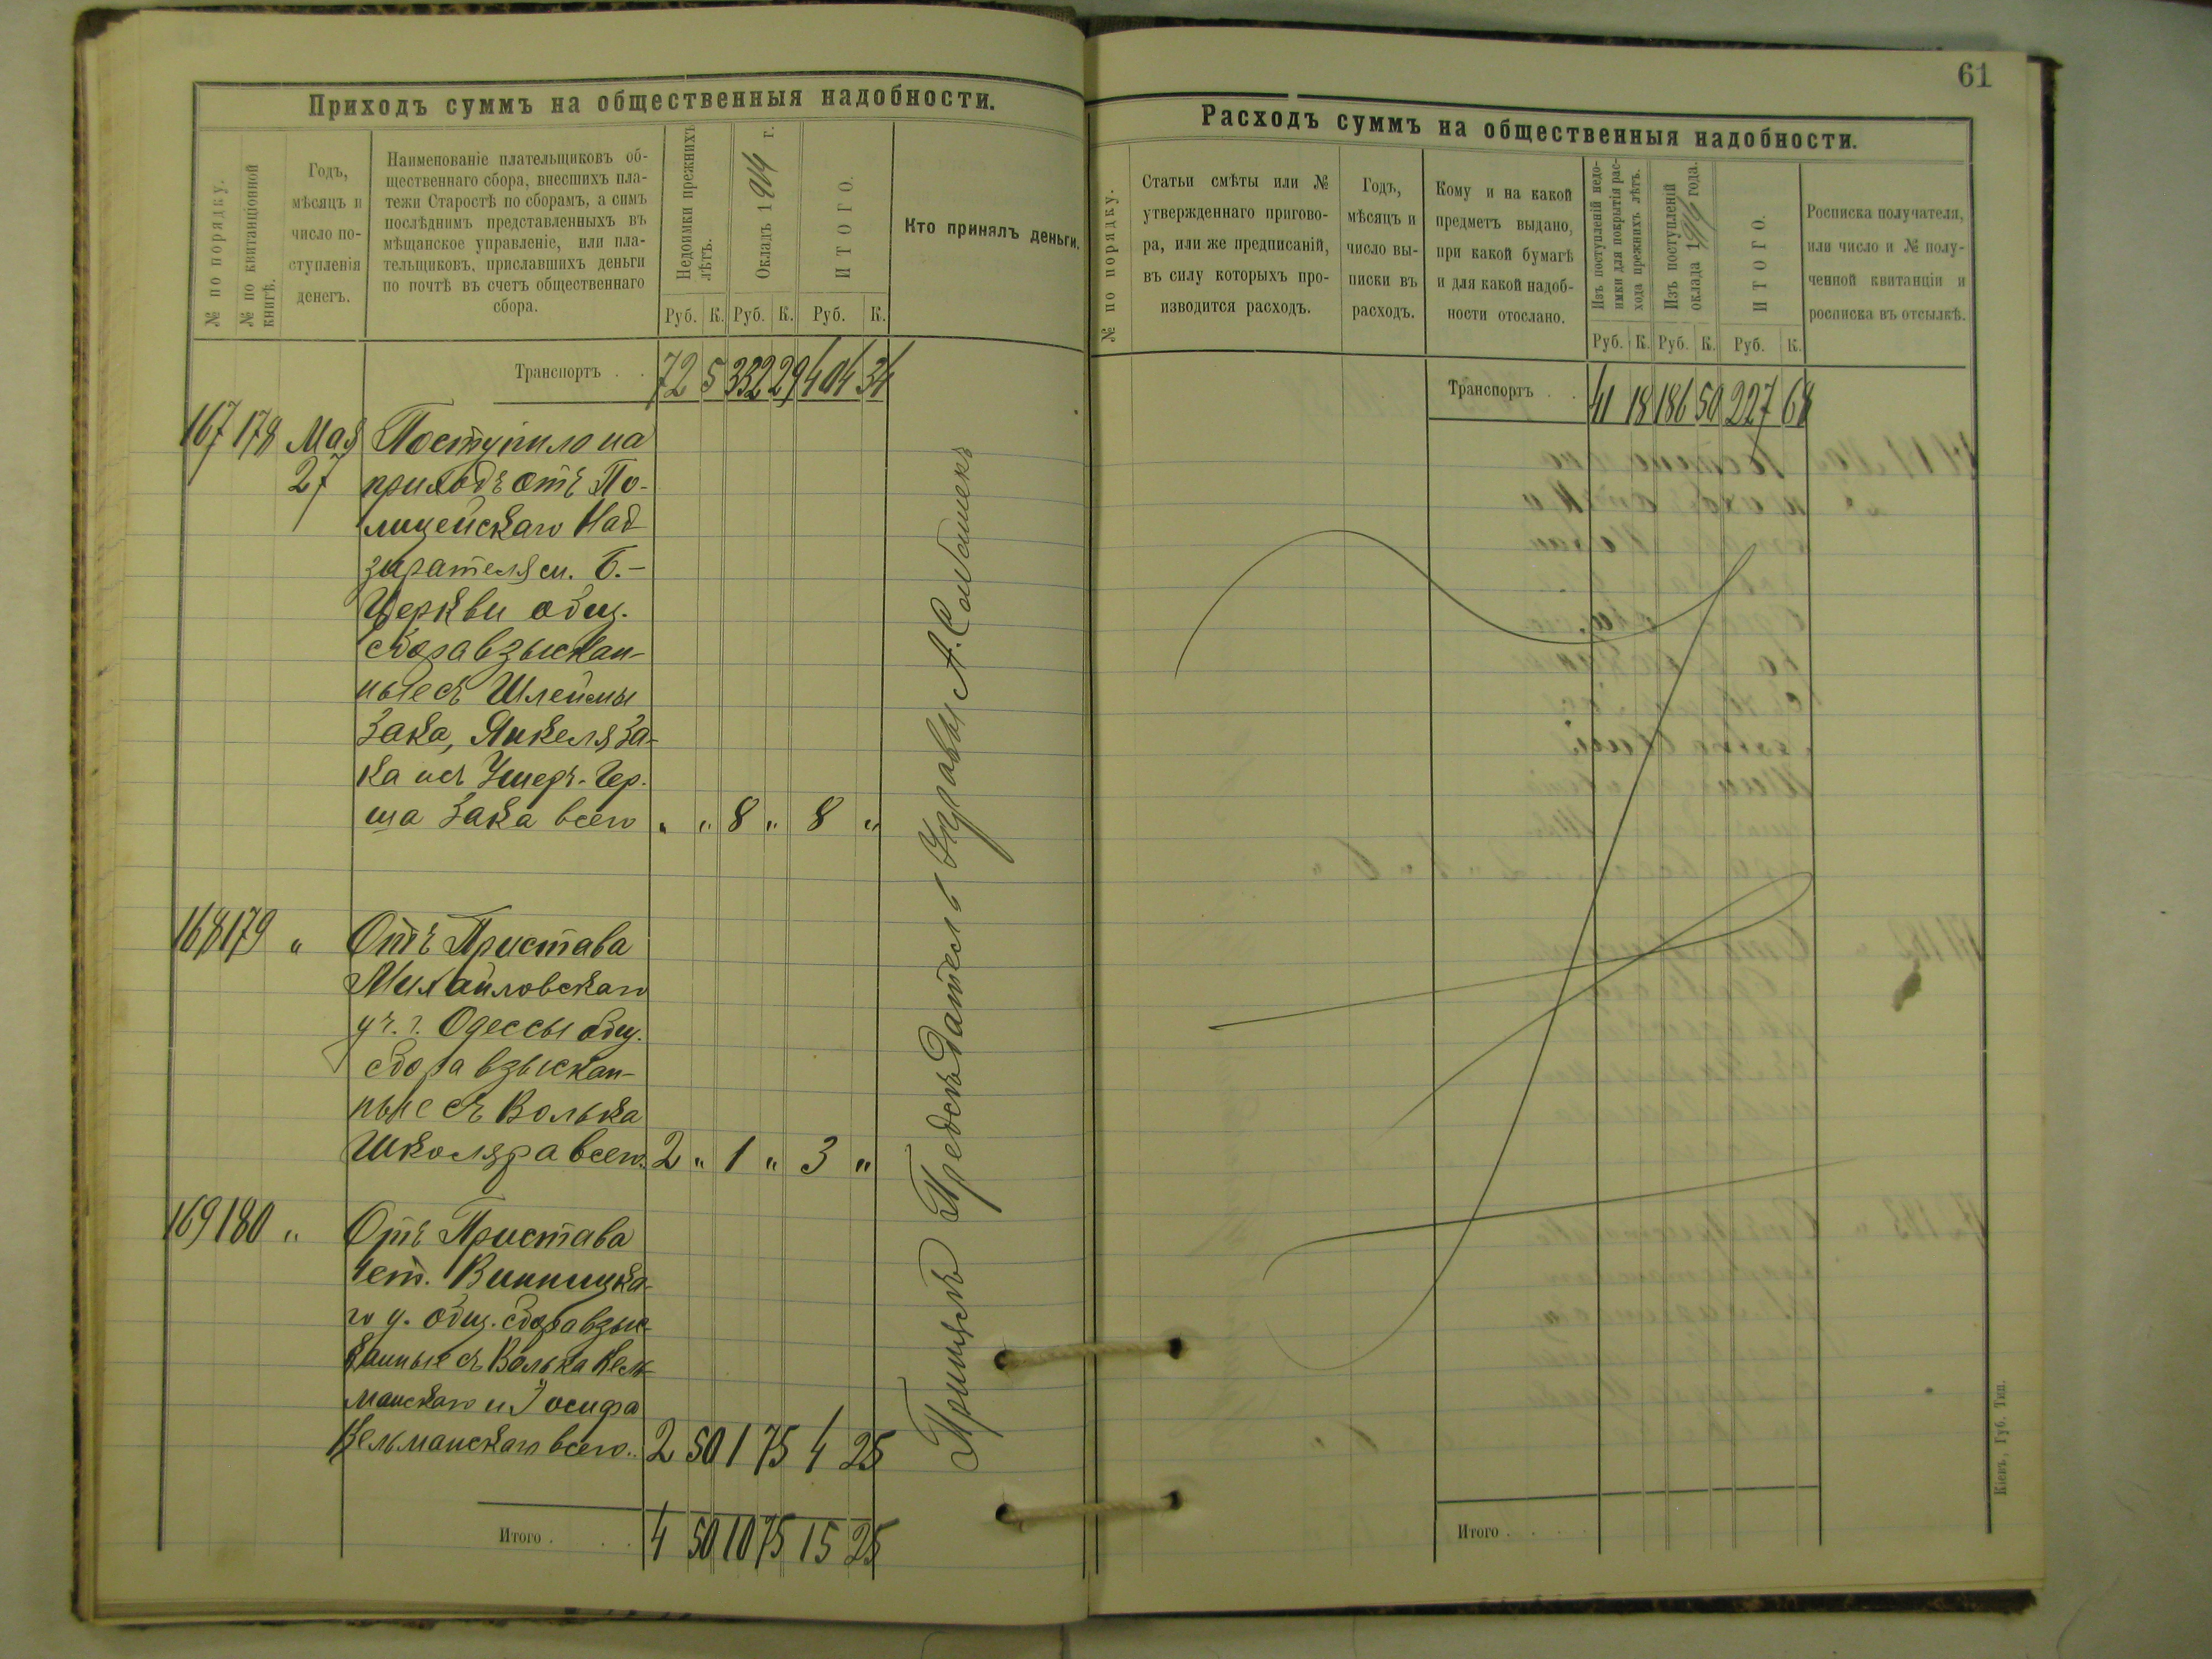 Приходъ суммъ на общественныя надобности.
№ по порядку.
№ по квитанціонной
книгѣ.
Годъ,
мѣсяцъ и
число по-
ступленія
денегъ.
Наименованіе плательщиковъ об-
щественнаго сбора, внесшихъ пла-
тежи Старостѣ по сборамъ, а симъ
послѣднимъ представленныхъ въ
мѣщанское управленіе, или пла-
тельщиковъ, приславшихъ деньги
по почтѣ въ счетъ общественнаго
сбора.
Недоимки прежнихъ
лѣтъ.
Окладъ 1914 г.
ИТОГО.
Кто принялъ деньги.
Руб. К. Руб. К. Руб. К.
Транспортъ . . 72 5 332 29 404 34
167 178 Мая Поступило на
27 приходъ отъ По-
лицейскаго Над
зирателя м. Б.-
Церкви общ.
сбора взыскан-
ные съ Шлемы
Зака, Янкеля За-
ка и съ Ушеръ-Гер-
ша Зака всего " " 8 " 8 "
168 179 " Отъ Пристава
Михайловскаго
уч. г. Одессы общ.
сбора взыскан-
ные съ Волька
Школяра всего. 2 " 1 " 3 "
169 180 " Отъ Пристава
1 ст. Винницка-
го у. общ. сбора взыс-
канные съ Волька Кель-
манскаго и Іосифа
Кельманскаго всего.. 2 50 1 75 4 25
Итого . . . 4 50 10 75 15 25
Предсѣдатель Управы А.
61
Расходъ суммъ на общественныя надобности.
№ по порядку.
Статьи смѣты или №
утвержденнаго пригово-
ра, или же предписаній,
въ силу которыхъ про-
изводится расходъ.
Годъ,
мѣсяцъ и
число вы-
писки въ
расходъ.
Кому и на какой
предметъ выдано,
при какой бумагѣ
и для какой надоб-
ности отослано.
Изъ поступленій недо-
имки для покрытія рас-
хода прежнихъ лѣтъ.
Изъ поступленій
оклада 1914 года.
ИТОГО.
Росписка получателя,
или число и № полу-
ченной квитанціи и
росписка въ отсылкѣ.
Руб. К. Руб. К. Руб. К.
Транспортъ . . 41 18 186 50 227 68
Итого . . . .
Кіевъ, Губ. Тип.